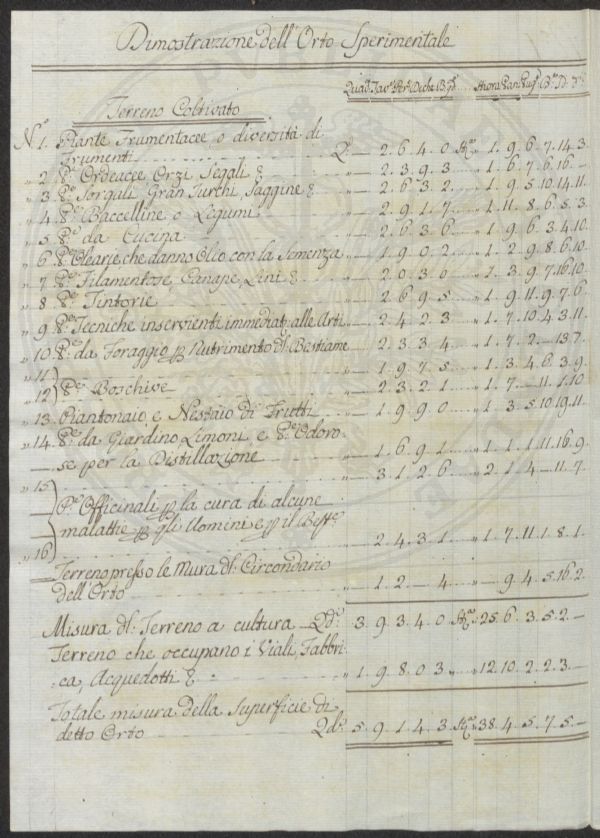 Dimostrazione dell'Orto Sperimentale
Quad. Tav. Per. Deche B. Stiora Pan. Pug. B. D. d.
Terreno Coltivato
N.° 1. Piante Frumentacee o diversità di
Frumenti Q.i — 2. 6. 4. 0 St.ra 1. 9. 6. 7. 14. 3.
" 2 P.e Ordeacee Orzi Segali & " — 2. 3. 9. 3 " 1. 6. 7. 6. 16. —
" 3 P.e Sorgali Gran Turchi, Saggine & " — 2. 6. 3. 2 " 1. 9. 5. 10. 14. 11.
" 4 P.e Baccelline o Legumi " — 2. 9. 1. 7 " 1. 11. 8. 6. 5. 3
" 5 P.e da Cucina " — 2. 6. 3. 6 " 1. 9. 6. 3. 4. 10.
" 6 P.e Olearie che danno Olio con la Semenza " — 1. 9. 0. 2 " 1. 2. 9. 8. 6. 10.
" 7 P.e Filamentose, Canape, Lini & " — 2. 0. 3. 0 " 1. 3. 9. 7. 16. 10
" 8 P.e Tintorie " — 2. 6. 9. 5 " 1. 9. 11. 9. 7. 6
" 9 P.e Tecniche inservienti immediat. alle Arti " — 2. 4. 2. 3 " 1. 7. 10. 4. 3. 11
" 10 P.e da Foraggio p Nutrimento di Bestiame " — 2. 3. 3. 4 " 1. 7. 2. — 13. 7.
" 11 " — 1. 9. 7. 5 " 1. 3. 4. 6. 3. 9
" 12 P.e Boschive " — 2. 3. 2. 1 " 1. 7. — 11. 1. 10
" 13 Piantonaio, e Nestaio di Frutti " — 1. 9. 9. 0 " 1. 3. 5. 10. 19. 11.
" 14 P.e da Giardino Limoni, e P.e Odoro
se per la Distillazione " — 1. 6. 9. 1 " 1. 1. 1. 11. 16. 9
" 15 " — 3. 1. 2. 6 " 2. 1. 4. — 11. 7
P.e Officinali p la cura di alcune
malattie p gli Uomini e p il Best.e
" 16 " — 2. 4. 3. 1 " 1. 7. 11. 1. 8. 1.
Terreno presso le Mura dl. Circondario
dell'Orto " — 1. 2. — 4 " — 9. 4. 5. 16. 2
Misura dl. Terreno a cultura — Qd.i 3. 9. 3. 4. 0 St.ra 25. 6. 3. 5. 2 —
Terreno che occupano i Viali, Fabbri
ca, Acquedotti & " 1. 9. 8. 0. 3 " 12. 10. 2. 2. 3 —
Totale misura della Superficie di
detto Orto Qd.i 5. 9. 1. 4. 3 St.ra 38. 4. 5. 7. 5 —